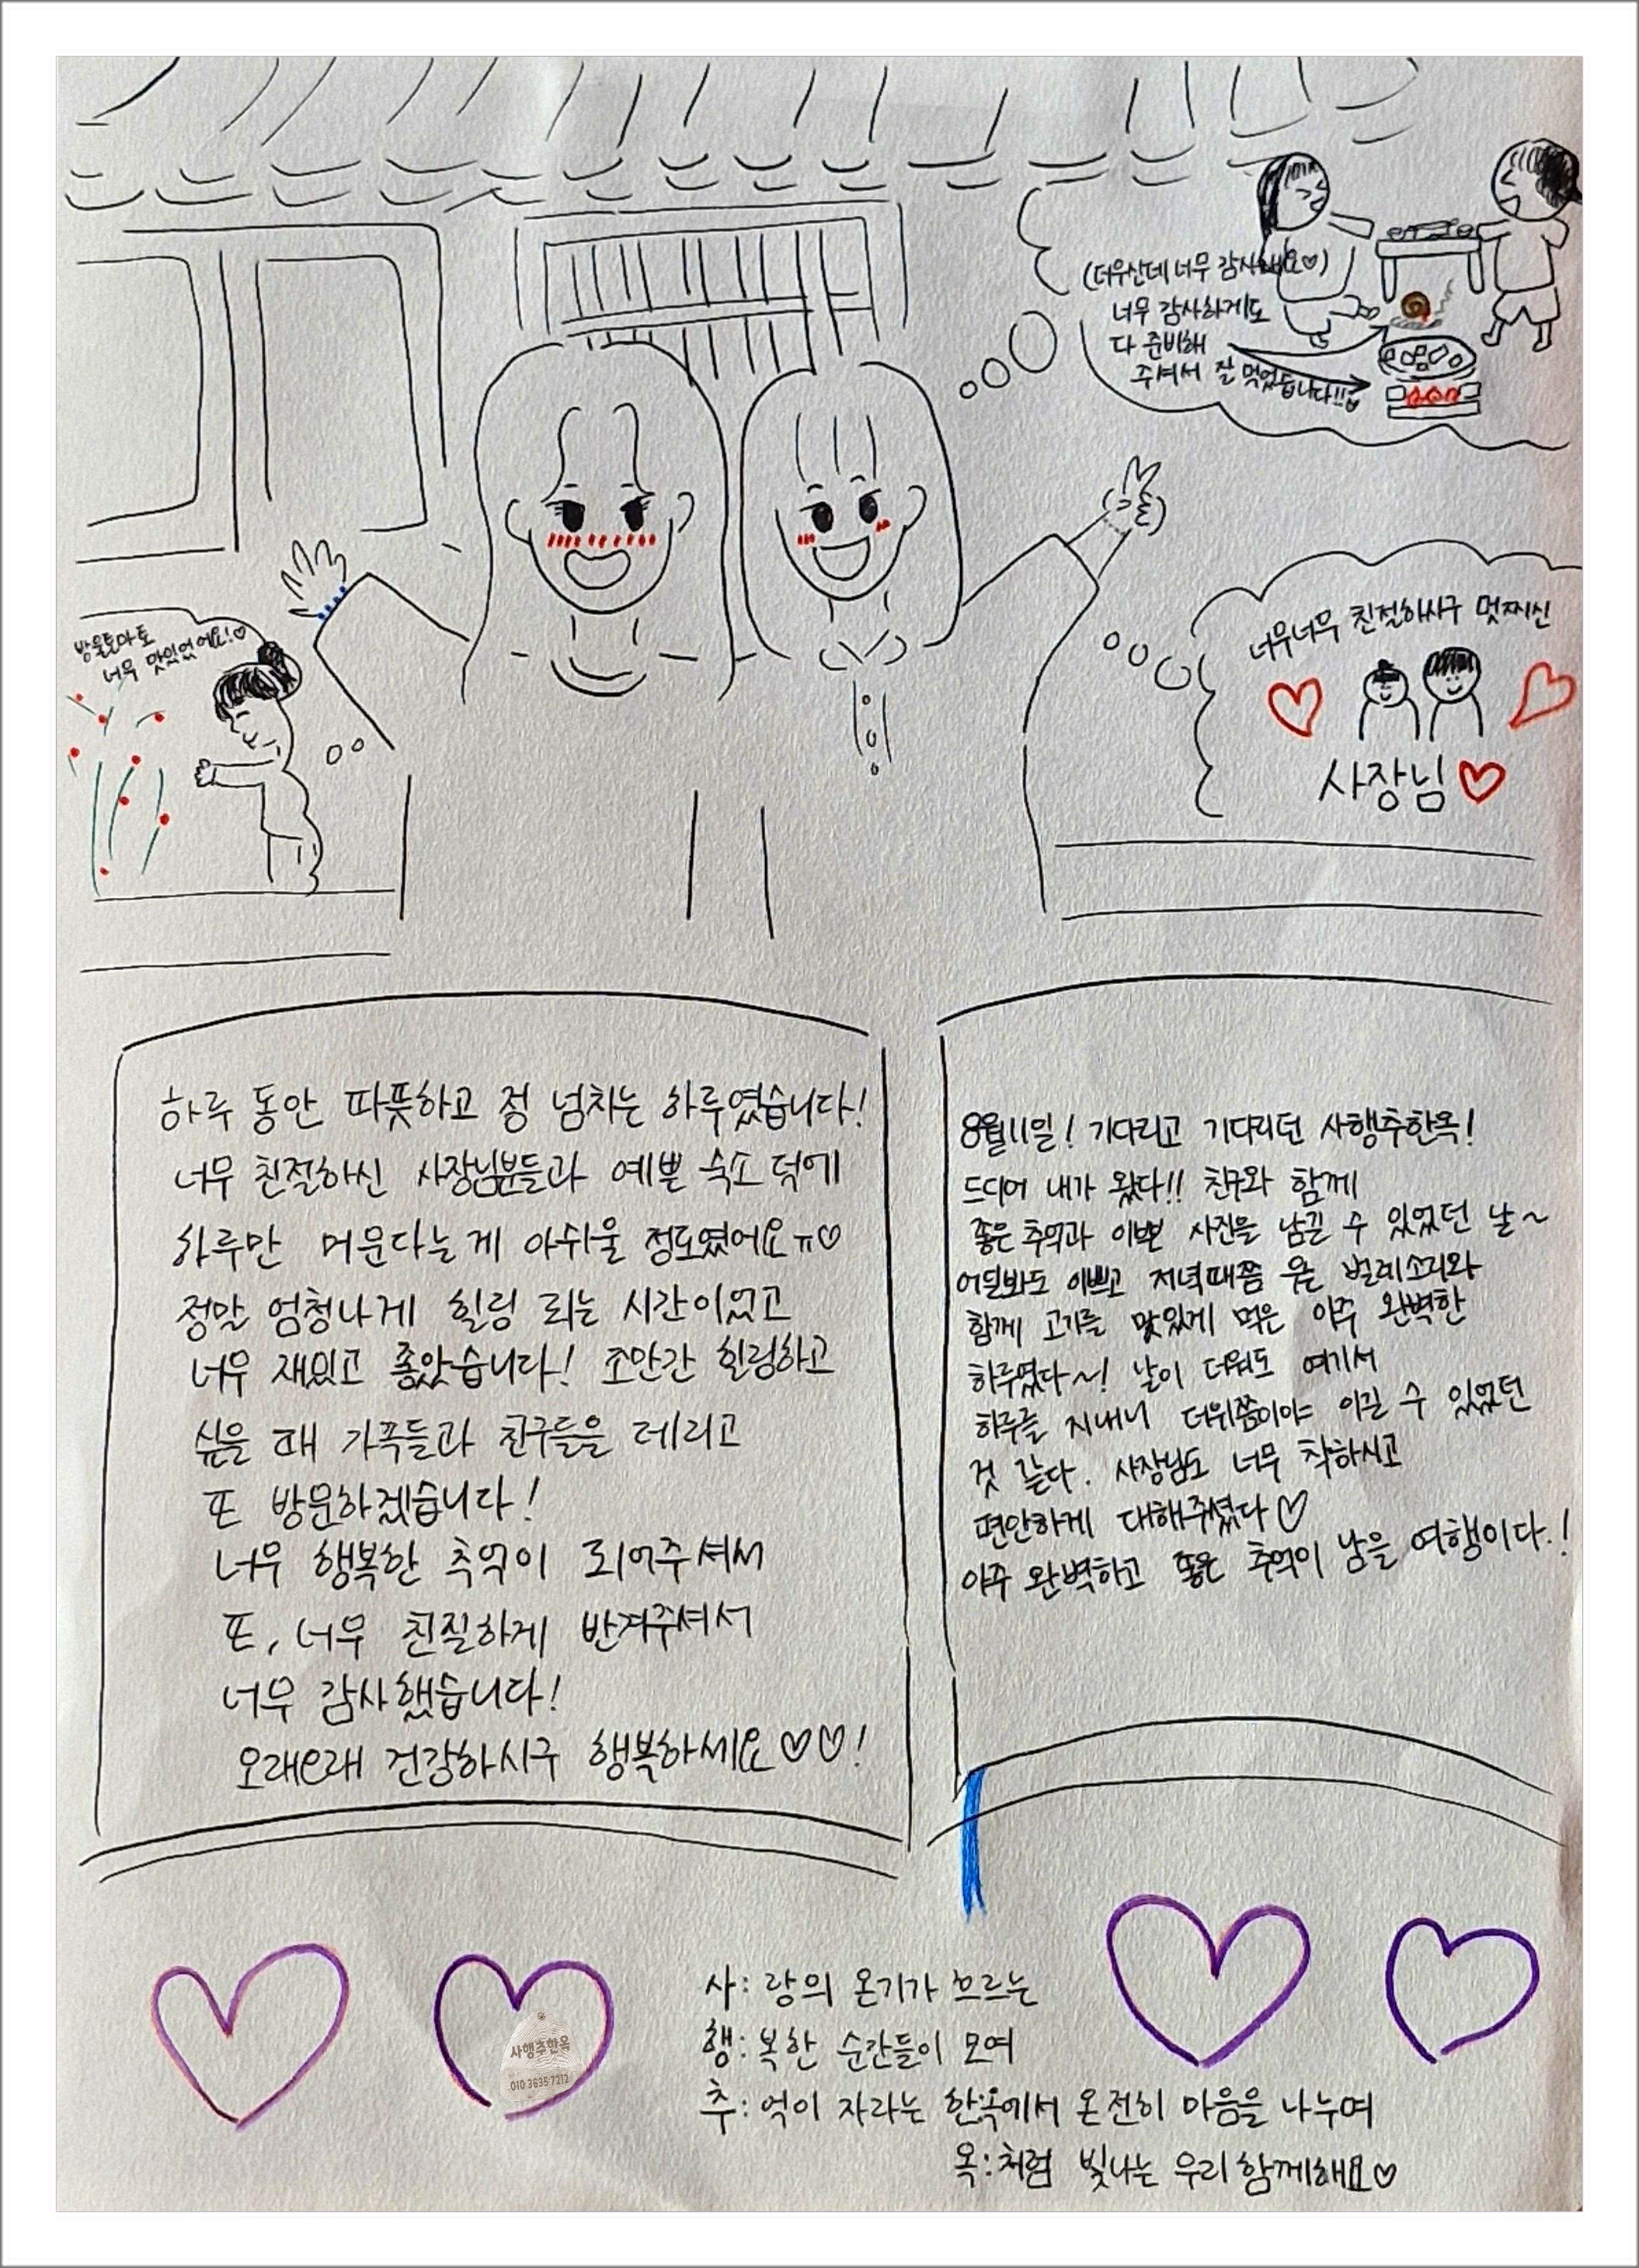 (더우신데 너무 감사해요♡)
너무 감사하게도
다 준비해
주셔서 잘 먹었습니다!!
방울토마토
너무 맛있었어요!♡
너무너무 친절하시구 멋찌신
사장님♡
하루 동안 따뜻하고 정 넘치는 하루였습니다!
너무 친절하신 사장님분들과 예쁜 숙소 덕에
하루만 머문다는게 아쉬울 정도였어요ㅠ♡
정말 엄청나게 힐링 되는 시간이었고
너무 재밌고 좋았습니다! 조만간 힐링하고
싶을 때 가족들과 친구들을 데리고
또 방문하겠습니다!
너무 행복한 추억이 되어주셔서
또, 너무 친절하게 반겨주셔서
너무 감사했습니다!
오래오래 건강하시구 행복하세요♡♡!
8월11일! 기다리고 기다리던 사행추한옥!
드디어 내가 왔다!! 친구와 함께
좋은 추억과 이쁜 사진을 남길 수 있었던 날~
어딜봐도 이쁘고 저녁때쯤 우는 벌레소리와
함께 고기를 맛있게 먹은 아주 완벽한
하루였다~! 날이 더워도 여기서
하루를 지내니 더위쯤이야 이길 수 있었던
것 같다. 사장님도 너무 착하시고
편안하게 대해주셨다♡
아주 완벽하고 좋은 추억이 남을 여행이다.!
사: 랑의 온기가 흐르는
행: 복한 순간들이 모여
추: 억이 자라는 한옥에서 온전히 마음을 나누며
옥:처럼 빛나는 우리 함께해요♡
사행추한옥
010.3635.7212